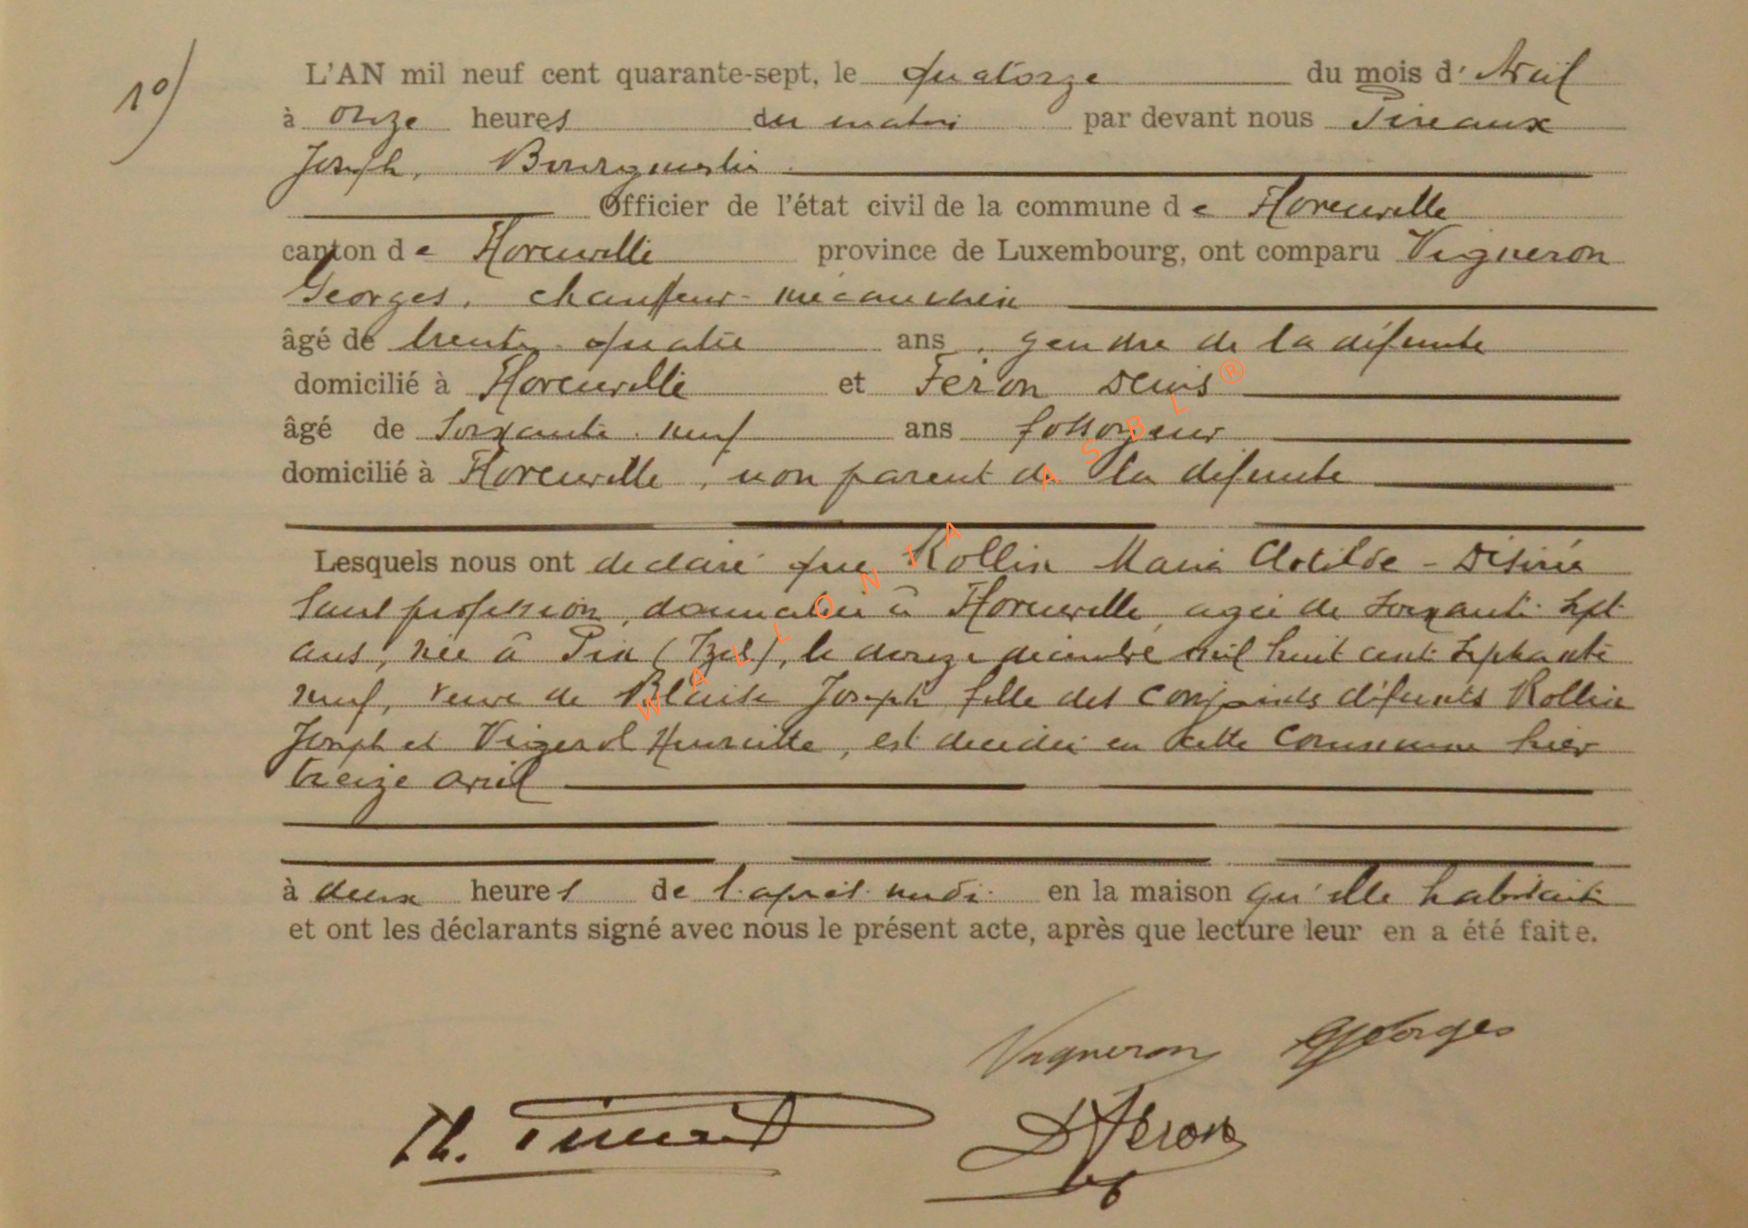 1°)
L'AN mil neuf cent quarante-sept, le quatorze du mois d' Avril
à onze heures du matin par devant nous Pireaux
Joseph, Bourgmestre
Officier de l'état civil de la commune de Florenville
canton de Florenville province de Luxembourg, ont comparu Vigneron
Georges, chauffeur-mécanicien
âgé de trente-quatre ans, gendre de la défunte
domicilié à Florenville et Feron Denis
âgé de Soixante-neuf ans fossoyeur
domicilié à Florenville, non parent de la défunte
Lesquels nous ont déclaré que Rollin Marie Clotilde-Désirée
sans profession, domiciliée à Florenville, agée de soixante-sept
ans, née à Pin (Izel), le douze décembre mil huit cent septante
neuf, veuve de Blaise Joseph fille des conjoints défunts Rollin
Joseph et Henriette, est décédée en cette Commune hier
treize avril
à deux heures de l'après-midi en la maison qu'elle habitait
et ont les déclarants signé avec nous le présent acte, après que lecture leur en a été faite.
Vigneron Georges
D Féron
WALLONIA ASBL ®